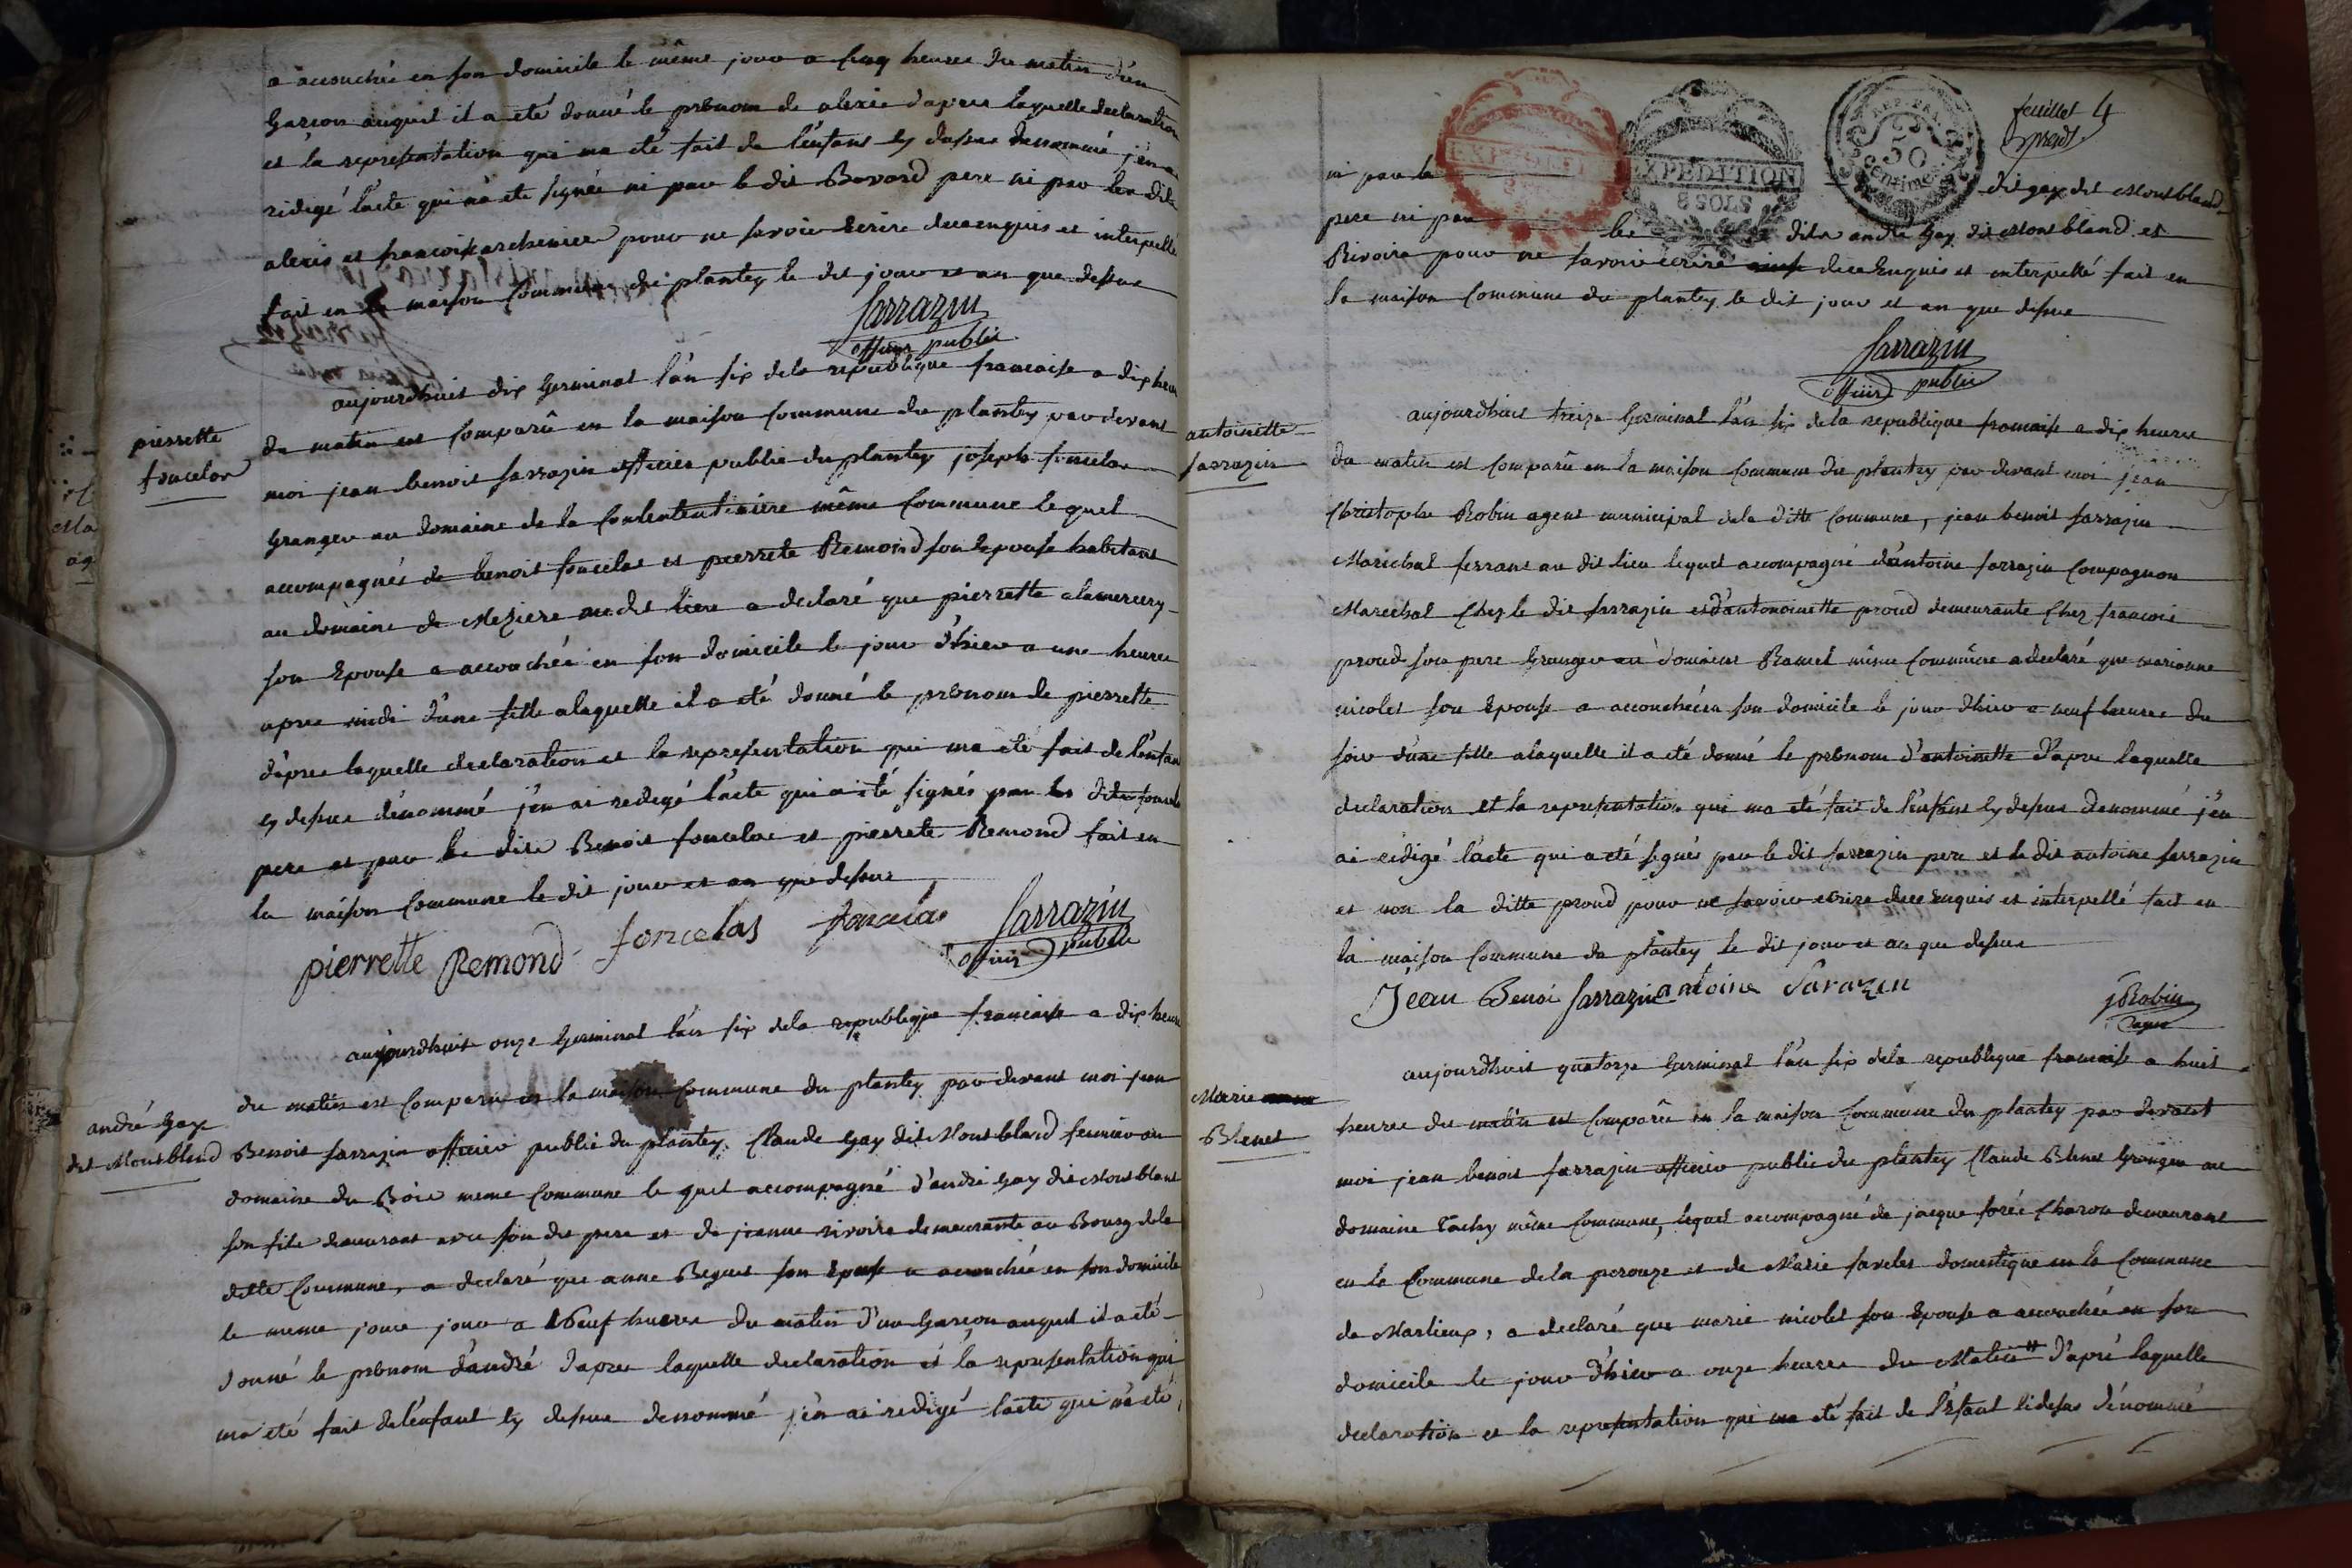 a accouchée en son domicile le même jour a cinq heures du matin d'un
Garcon auquel il a été donné le prénom de alexis d'apres laquelle declaration
et la representation qui ma été fait de l'enfant cy dessus denommé j'en ai
redigé l'acte qui n'a été signée ni par le dit Bavard pere ni par les dits
alexis et pour ne savoir Ecrire de ce enquis et interpellé
fait en la maison Commune du plantey le dit jour et an que dessus
Sarrazin
officier public
pierrette
foncelas
aujourdhuit dix Germinal l'an six de la republique francaise a dix heure
du matin est Comparû en la maison Commune du plantey par devant
moi jean benoit Sarrazin officier public du plantey joseph foncelas
Granger au domaine de la même Commune le quel
accompagnés de benoit foncelas et pierrete Remond son Epouse habitant
au domaine de Meziere audit lieu a declaré que pierrette alamercery
son Epouse a accouchée en son domicile le jour d'hier a une heure
apres midi d'une fille alaquelle il a été donné le prénom de pierrette
d'apres laquelle declaration et la representation qui ma été fait de l'enfan
cy dessus dénommé j'en ai redigé l'acte qui a été signés par les dits foncelas
pere et par les dits Benoit foncelas et pierrete Remond fait en
la maison Commune le dit jour et an que dessus
pierrette Remond foncelas foncelas Sarrazin
officier public
andré Gay
dit Montbland
aujourdhuit onze Germinal l'an six de la republique francaise a dix heure
du matin est Comparu en la maison Commune du plantey par devant moi jean
Benoit Sarrazin officier public du plantey. Claude Gay dit Montbland fermier au
domaine du Bois meme Commune le quel accompagné d'andré Gay dit Montbland
son fils demeurant avec son dit pere et de jeanne rivoire demeurante au Bourg de la
ditte Commune, a declaré que anne Beguet son Epouse a accouchée en son domicile
le meme jour jour a Neuf heures du matin d'un Garcon auquel il a été
donné le prénom d'andré d'apres laquelle declaration et la representation qui
ma été fait de l'enfant cy dessus denommé j'en ai redigé l'acte qui n'a été
feuillet 4
EXPEDITION
8 SOLS
REP. FRA.
50
Centimes
ni par le dit gay dit Montbland
pere ni par les dits andré Gay dit Montbland et
Rivoire pour ne savoir ecrire de ce Enquis et interpellé fait en
la maison Commune du plantey le dit jour et an que dessus
Sarrazin
officier public
antoinette
Sarrazin
aujourdhuit treize Germinal l'an six de la republique francaise a dix heures
du matin est Comparû en la maison Commune du plantey par devant moi jean
Christophe Robin agent municipal de la ditte Commune, jean benoit Sarrazin
Maréchal ferrant au dit lieu lequel accompagné d'antoine Sarrazin Compagnon
Marechal Chez le dit Sarrazin et d'antonoinette proud demeurante Chez francois
proud son pere Granger au domaine Ramel même Commune a declaré que marianne
nicolet son Epouse a accouchée en son domicile le jour d'hier a neuf heures du
soir d'une fille alaquelle il a été donné le prénom d'antoinette d'apres laquelle
declaration et la representation qui ma été fait de l'enfant cy dessus denommé j'en
ai redigé l'acte qui a été signés par le dit Sarrazin pere et le dit antoine Sarrazin
et non la ditte proud pour ne savoir ecrire de ce enquis et interpellé fait en
la maison Commune du plantey le dit jour et an que dessus
Jean Benoi Sarrazin antoine Sarazin
jRobin
agent
Marie
Blenet
aujourdhuit quatorze Germinal l'an six de la republique francaise a huit
heures du matin est Comparû en la maison Commune du plantey par devant
moi jean benoit Sarrazin officier public du plantey Claude Blenet Granger au
domaine Tachy même Commune, lequel accompagné de jacque Charon demeurant
en la Commune de la perouze et de Marie domestique en la Commune
de Marlieux, a declaré que marie nicolet son Epouse a accouchée en son
domicile le jour d'hier a onze heures du Matin # d'apré laquelle
declaration et la representation qui ma été fait de l'Efant cidessus dénommé